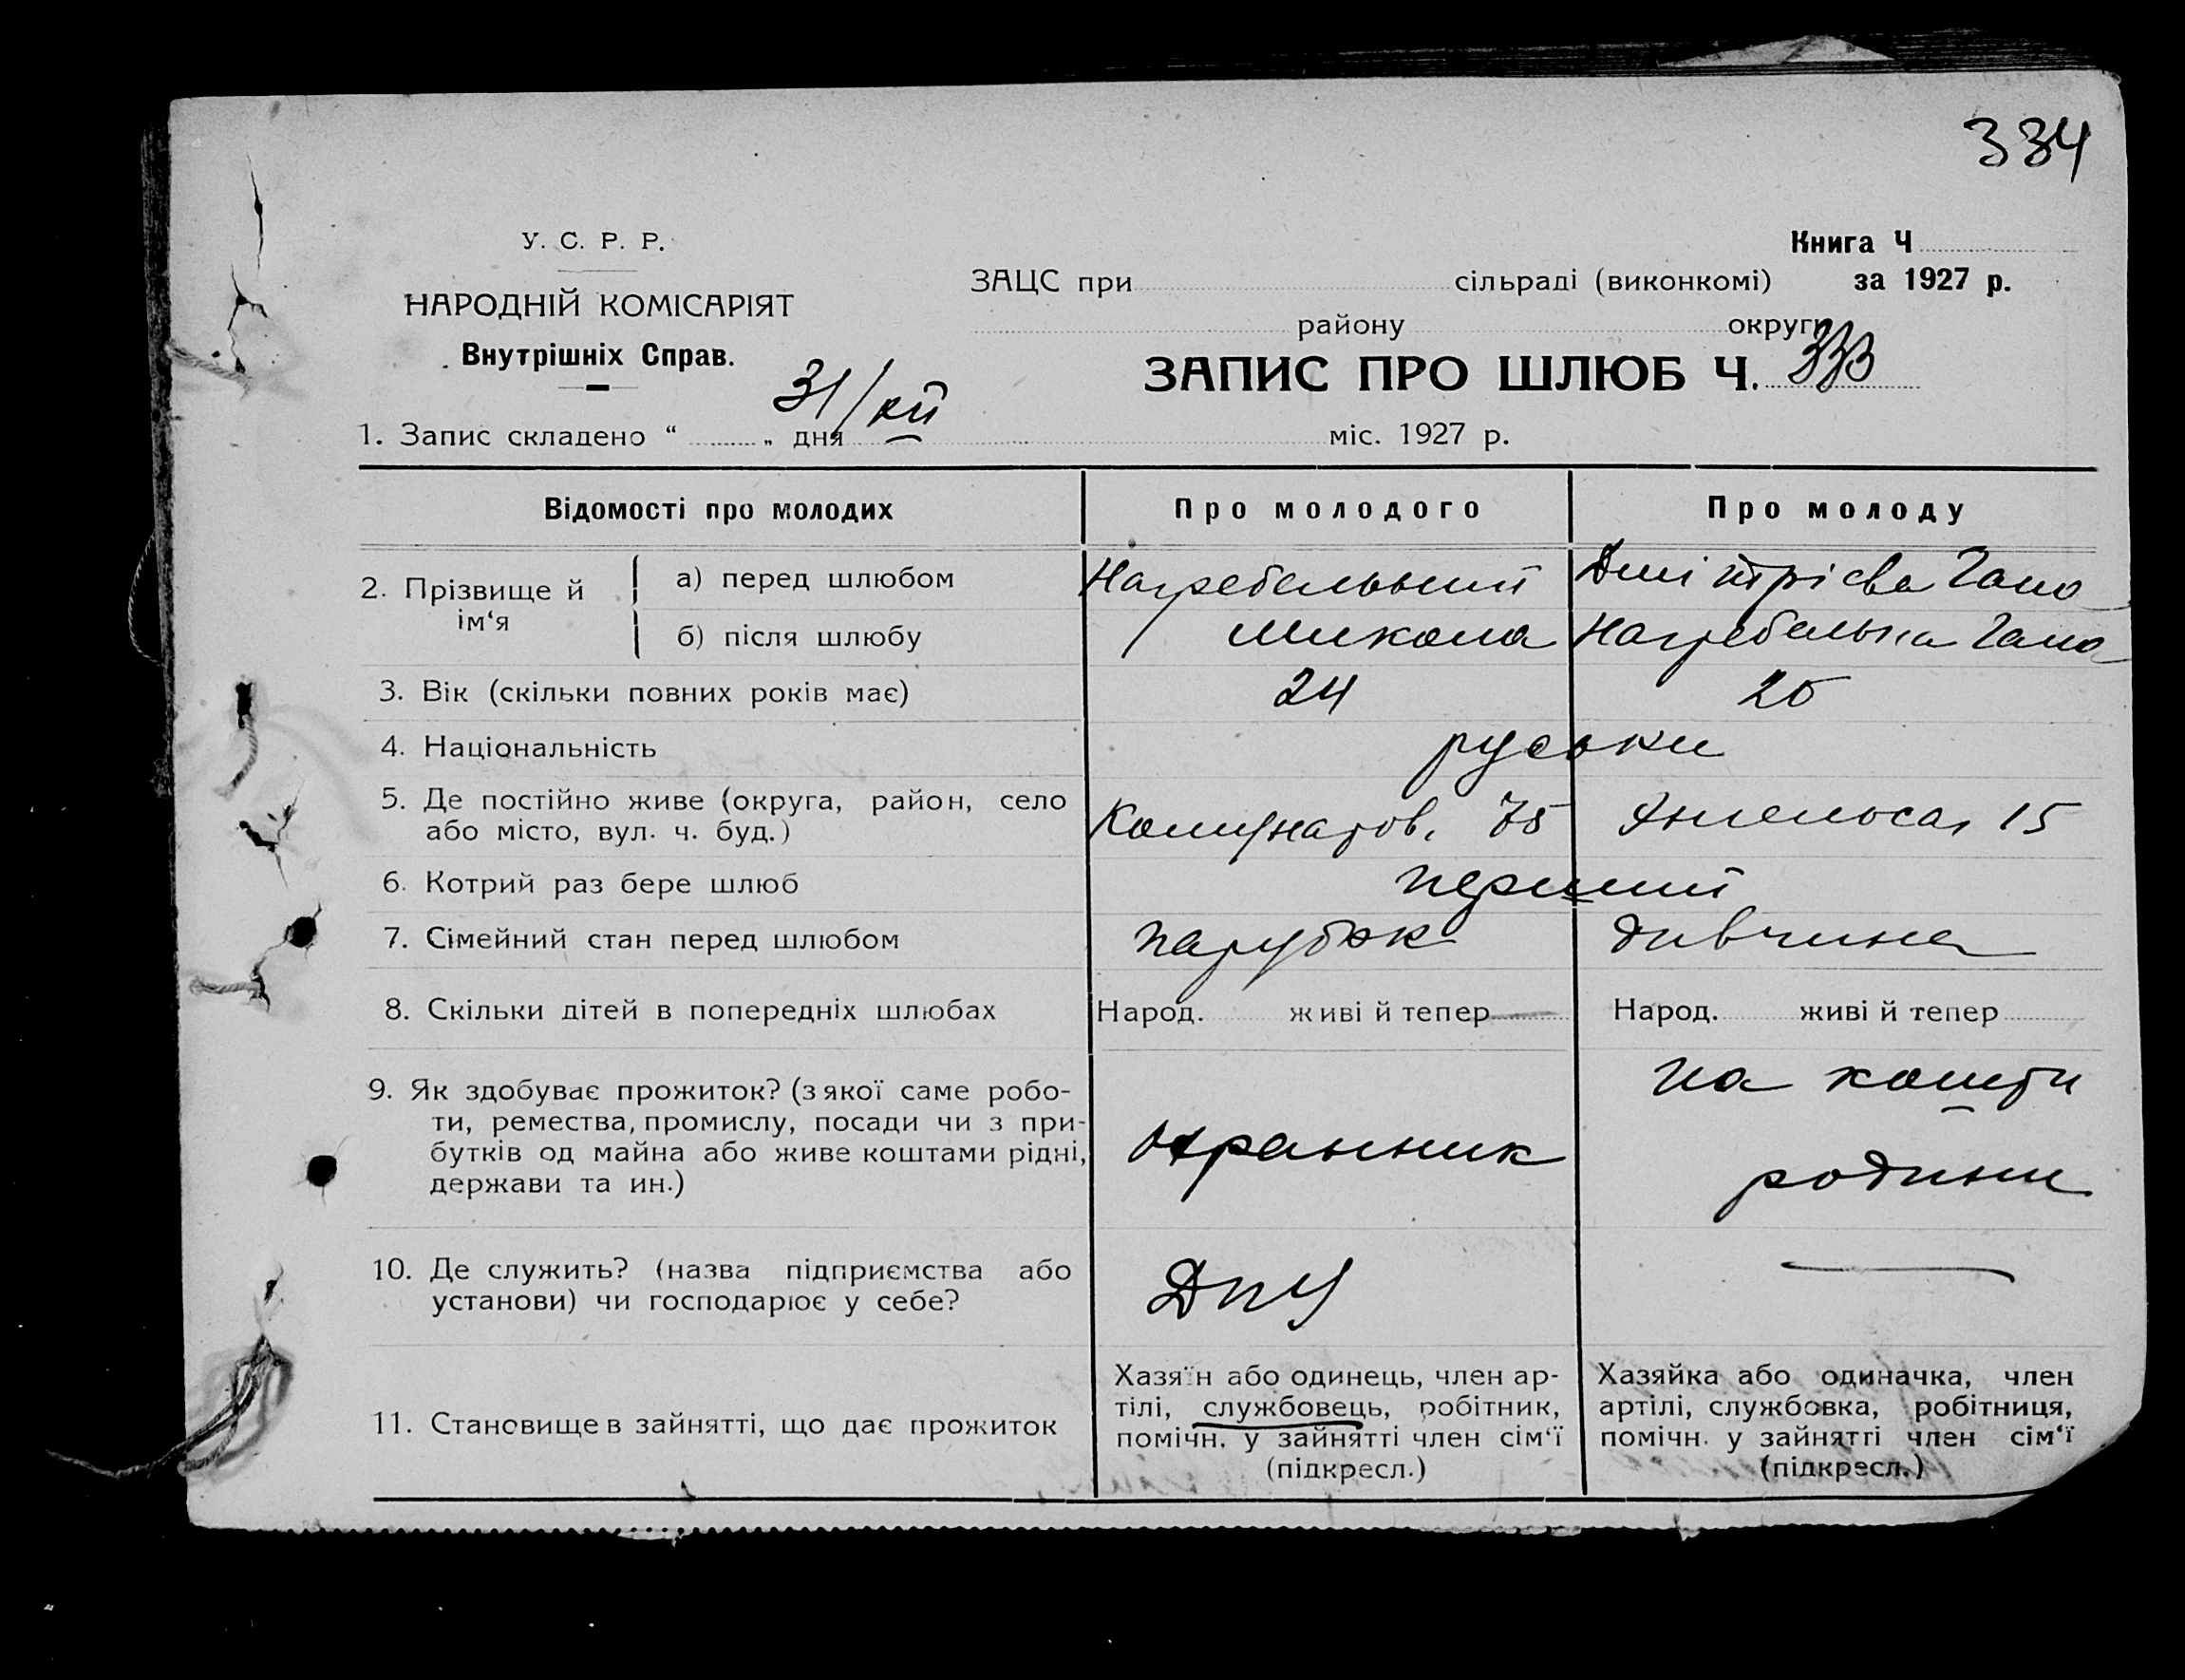 334
У. С. Р. Р.
НАРОДНІЙ КОМІСАРІЯТ
Внутрішніх Справ.
Книга Ч
ЗАЦС при сільраді (виконкомі) за 1927 р.
району округи
ЗАПИС ПРО ШЛЮБ Ч. 333
1. Запис складено “ „ дня 31/XII міс. 1927 р.
Відомості про молодих
Про молодого
Про молоду
2. Прізвище й ім‘я
а) перед шлюбом
Нагребельний
Дмітрієва Гана
б) після шлюбу
Микола
Нагребельна Гана
3. Вік (скільки повних років має)
24
25
4. Національність
руськи
5. Де постійно живе (округа, район, село
або місто, вул. ч. буд.)
Комунаров. 75
Энгельса, 15
6. Котрий раз бере шлюб
перший
7. Сімейний стан перед шлюбом
парубок
дивчина
8. Скільки дітей в попередніх шлюбах
Народ. живі й тепер
Народ. живі й тепер
9. Як здобуває прожиток? (з якої саме робо-
ти, ремества, промислу, посади чи з при-
бутків од майна або живе коштами рідні,
держави та ин.)
охранник
на кошти
родини
10. Де служить? (назва підприємства або
установи) чи господарює у себе?
ДПУ
11. Становище в зайнятті, що дає прожиток
Хазяїн або одинець, член ар-
тілі, службовець, робітник,
помічн. у зайнятті член сім‘ї
(підкресл.)
Хазяйка або одиначка, член
артілі, службовка, робітниця,
помічн. у зайнятті член сім‘ї
(підкресл.)